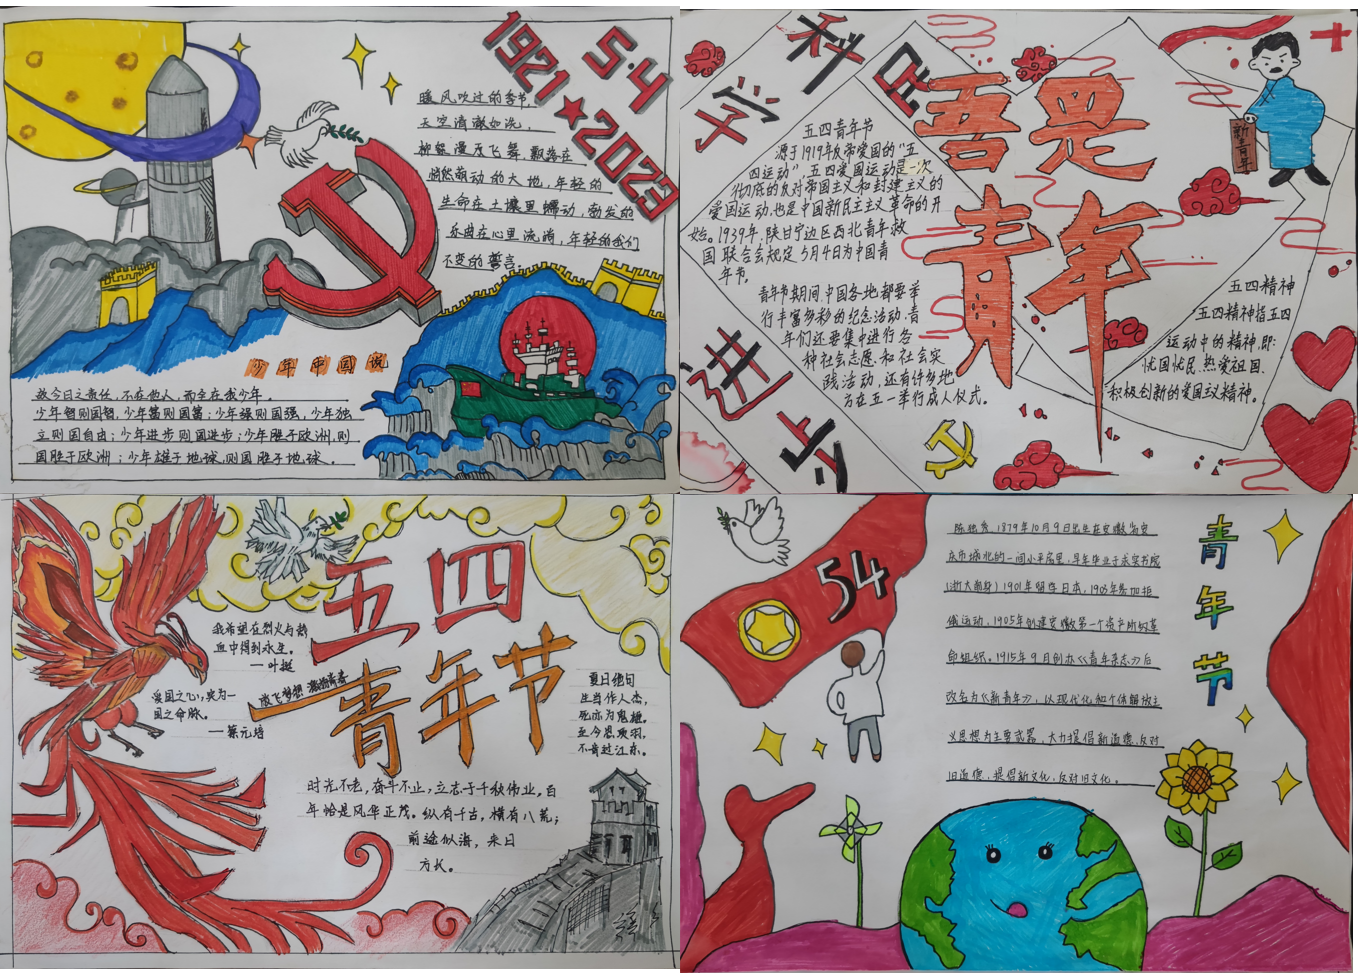 5·4
1921★2023
暖风吹过的季节，
天空清澈如洗，
柳絮漫天飞舞，飘落在
悄然萌动的大地，年轻的
生命在土壤里蠕动，勃发的
乐曲在心里流淌，年轻的我们
不变的誓言。
少年中国说
故今日之责任，不在他人，而全在我少年。
少年智则国智，少年富则国富；少年强则国强，少年独
立则国自由；少年进步则国进步；少年胜于欧洲，则
国胜于欧洲；少年雄于地球，则国雄于地球。
科学
民
进步
吾是
青年
新青年
五四青年节
源于1919年反帝爱国的“五
四运动”，五四爱国运动是一次
彻底的反对帝国主义和封建主义的
爱国运动，也是中国新民主主义革命的开
始。1939年，陕甘宁边区西北青年救
国联合会规定5月4日为中国青
年节。
青年节期间，中国各地都要举
行丰富多彩的纪念活动，青
年们还要集中进行各
种社会志愿和社会实
践活动，还有许多地
方在五一举行成人仪式。
五四精神
五四精神指五四
运动中的精神，即：
忧国忧民、热爱祖国、
积极创新的爱国主义精神。
五四
青年节
我希望在烈火与热
血中得到永生。
——叶挺
放飞梦想 激扬青春
爱国之心，实为一
国之命脉。
——蔡元培
夏日绝句
生当作人杰，
死亦为鬼雄。
至今思项羽，
不肯过江东。
时光不老，奋斗不止，立志于千秋伟业，百
年恰是风华正茂。纵有千古，横有八荒；
前途似海，来日
方长。
54
青年节
陈独秀，1879年10月9日出生在安徽省安
庆市城北的一间小平房里，早年毕业于求实书院
（浙大前身）1901年留学日本，1903年参加拒
俄运动，1905年创建安徽第一个资产阶级革
命组织。1915年9月创办《青年杂志》后
改名为《新青年》，以现代化和个体解放主
义思想为主要武器，大力提倡新道德、反对
旧道德，提倡新文化、反对旧文化。